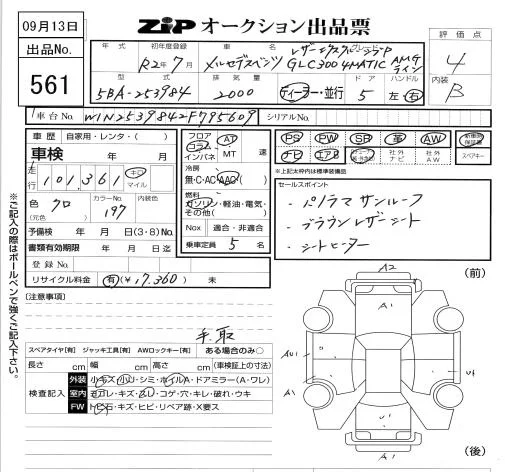 09月13日
出品No.
561
ZIP オークション出品票
評価点
4
内装
B
年式
初年度登録
R2年7月
車名
グレード
メルセデスベンツ GLC300 4MATIC AMGライン
レザーエクスクルーシブP
型式
5BA-253984
排気量
2000
ディーラー・並行
ドア
5
ハンドル
左・右
車台No.
W1N2539842F795609
シリアルNo.
車歴 自家用・レンタ・( )
車検 年 月
走行 101,361 キロ マイル
色 クロ
(元色)
カラーNo.
197
内装色
予備検 年 月 日(3・8)もの
書類有効期限 年 月 日迄
登録No.
リサイクル料金 有(¥17,360) 未
フロア コラム インパネ
AT
MT 速
冷房
無・C・AC・AAC
燃料
ガソリン・軽油・電気・その他( )
Nox 適合・非適合
乗車定員 5 名
PS PW SR 革 AW 新車時保証書
ナビ エアB 社外ナビ 社外AW スペアキー
※上記太枠内は標準装備品
セールスポイント
・パノラマサンルーフ
・ブラウンレザーシート
・シートヒーター
※ご記入の際はボールペンで強くご記入下さい。
[注意事項]
手、取
スペアタイヤ[有] ジャッキ工具[有] AWロックキー[有] ある場合のみ○
長さ cm 幅 cm 高さ cm (車検証上の寸法)
検査記入
外装 小キズ・小U・シミ・ホイルA・ドアミラー(A・ワレ)
室内 ヨゴレ・キズ・スレ・コゲ・穴・キレ・破れ・ウキ
FW トビ石・キズ・ヒビ・リペア跡・X要ス
(前)
A2
A1
AU1
A1
U1
A1
(後)